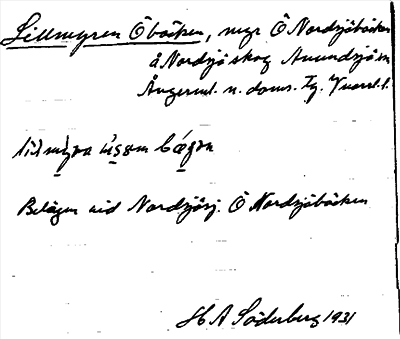 Lillmyren Ö bäcken, myr Ö Nordsjöbäcken
å Nordsjö skog Anundsjö sn
Ångerml. n. doms. Tg. Vnorrl. l.
Belägen vid Nordsjösj. Ö Nordsjöbäcken
H A Söderberg 1931